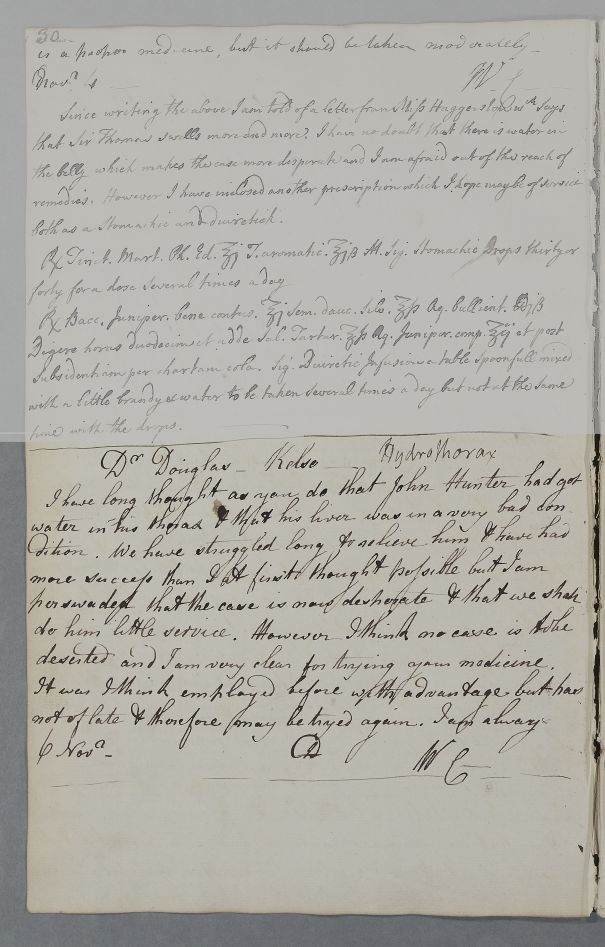 30
is a proper medicine, but it should be taken moderately
Novr. 4 W C
Since writing the above I am told of a letter from Miss Haggerston wch. says
that Sir Thomas swells more and more. I have no doubt that there is water in
the belly which makes the case more desperate and I am afraid out of the reach of
remedies. However I have inclosed another prescription which I hope may be of service
both as a Stomachic and diuretick.
℞ Tinct. Mart. Ph. Ed. ℥j T. aromatic. ℥jß M. Sig. Stomachic Drops thirty or
forty for a dose several times a day
℞ Bacc. Juniper. bene contus. ℥j Sem. dauc. Silv. ℥ß Aq. bullient. ℔jß
Digere horas duodecim et adde Sal. Tartar. ℥ß Aq. Juniper. comp. ℥ij et post
Subsidentiam per chartam cola. Sig. Diuretic Infusion a table Spoonfull mixed
with a little brandy & water to be taken several times a day but not at the same
time with the drops.
Dr Douglas - Kelso Hydrothorax
I have long thought as you do that John Hunter had got
water in his thorax & that his liver was in a very bad con
dition. We have struggled long to relieve him & have had
more success than I at first thought possible but I am
perswaded that the case is now desperate & that we shall
do him little service. However I think no case is to be
deserted and I am very clear for trying your medicine.
It was I think employed before with advantage but has
not of late & therefore may be tryed again. I am always
6 Novr. D W C